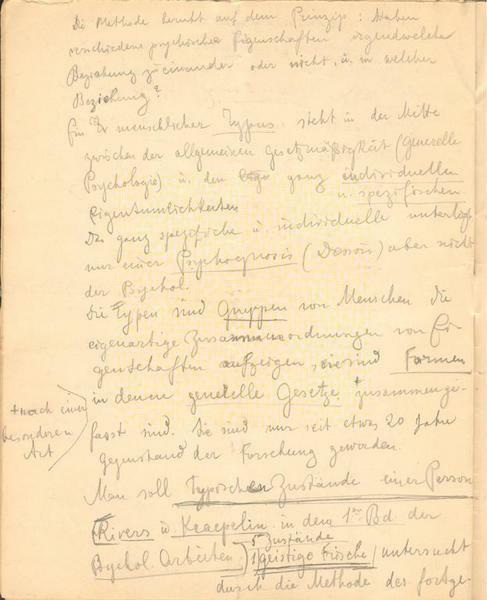 Die Methode beruht auf dem Prinzip: Haben
verschiedene psychische Eigenschaften irgendwelche
Beziehung zueinander oder nicht, u. in welcher
Beziehung?
Ein menschlicher Typus steht in der Mitte
zwischen der allgemeinen Gesetzmäßigkät (Generelle
Psychologie) u. den ganz individuellen
u. spezifischen
Eigentümlichkeiten
Das ganz spezifische u. individuelle unterliegt
nur einer Psychognosis (Dessoir) aber nicht
der Psychol.
Die Typen sind Gruppen von Menschen die
eigenartige Zusammenordnungen von Ei-
genschaften aufzeigen, sie sind Formen
in denen generelle Gesetze + zusammenge-
+ nach einer
besonderen
Art
fasst sind. Sie sind nur seit etwas 20 Jahre
Gegenstand der Forschung geworden.
Man soll Typischen Zustände einer Person
(Rivers u Kraepelin in dem 1ten Bd. der
Psychol. Arbeiten)
5 Zustände
1) geistige Frische / untersucht
durch die Methode des fortge-